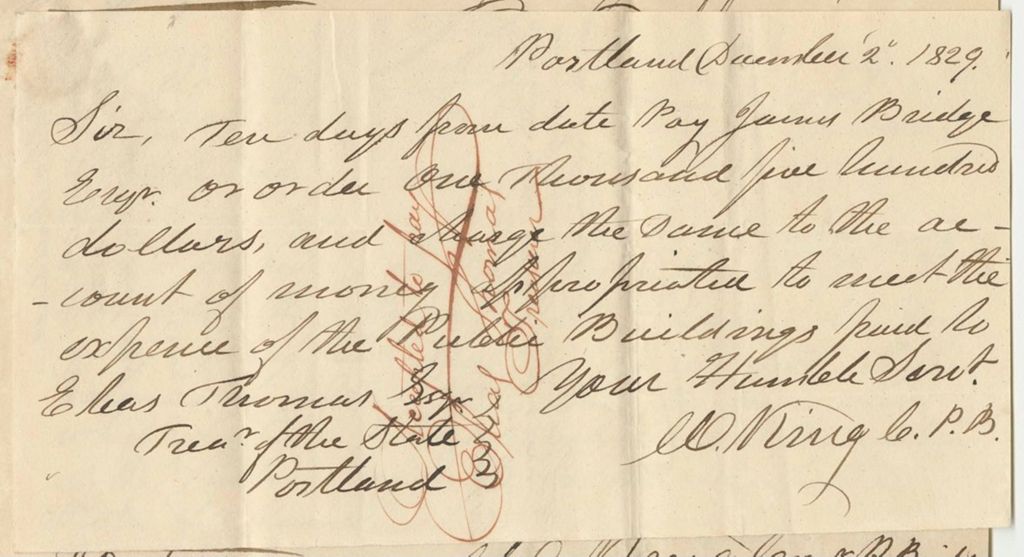 Portland December 2d. 1829.
Sir, Ten days from date Pay James Bridge
Esqr. or order One Thousand five hundred
dollars, and charge the Same to the ac-
-count of money appropriated to meet the
expence of the Public Buildings paid to
Your Humble Servt.
W. King C. P. B.
Elias Thomas Esqr
Trear. of the State
Portland
Accepted to pay
Elias Thomas
Treasurer